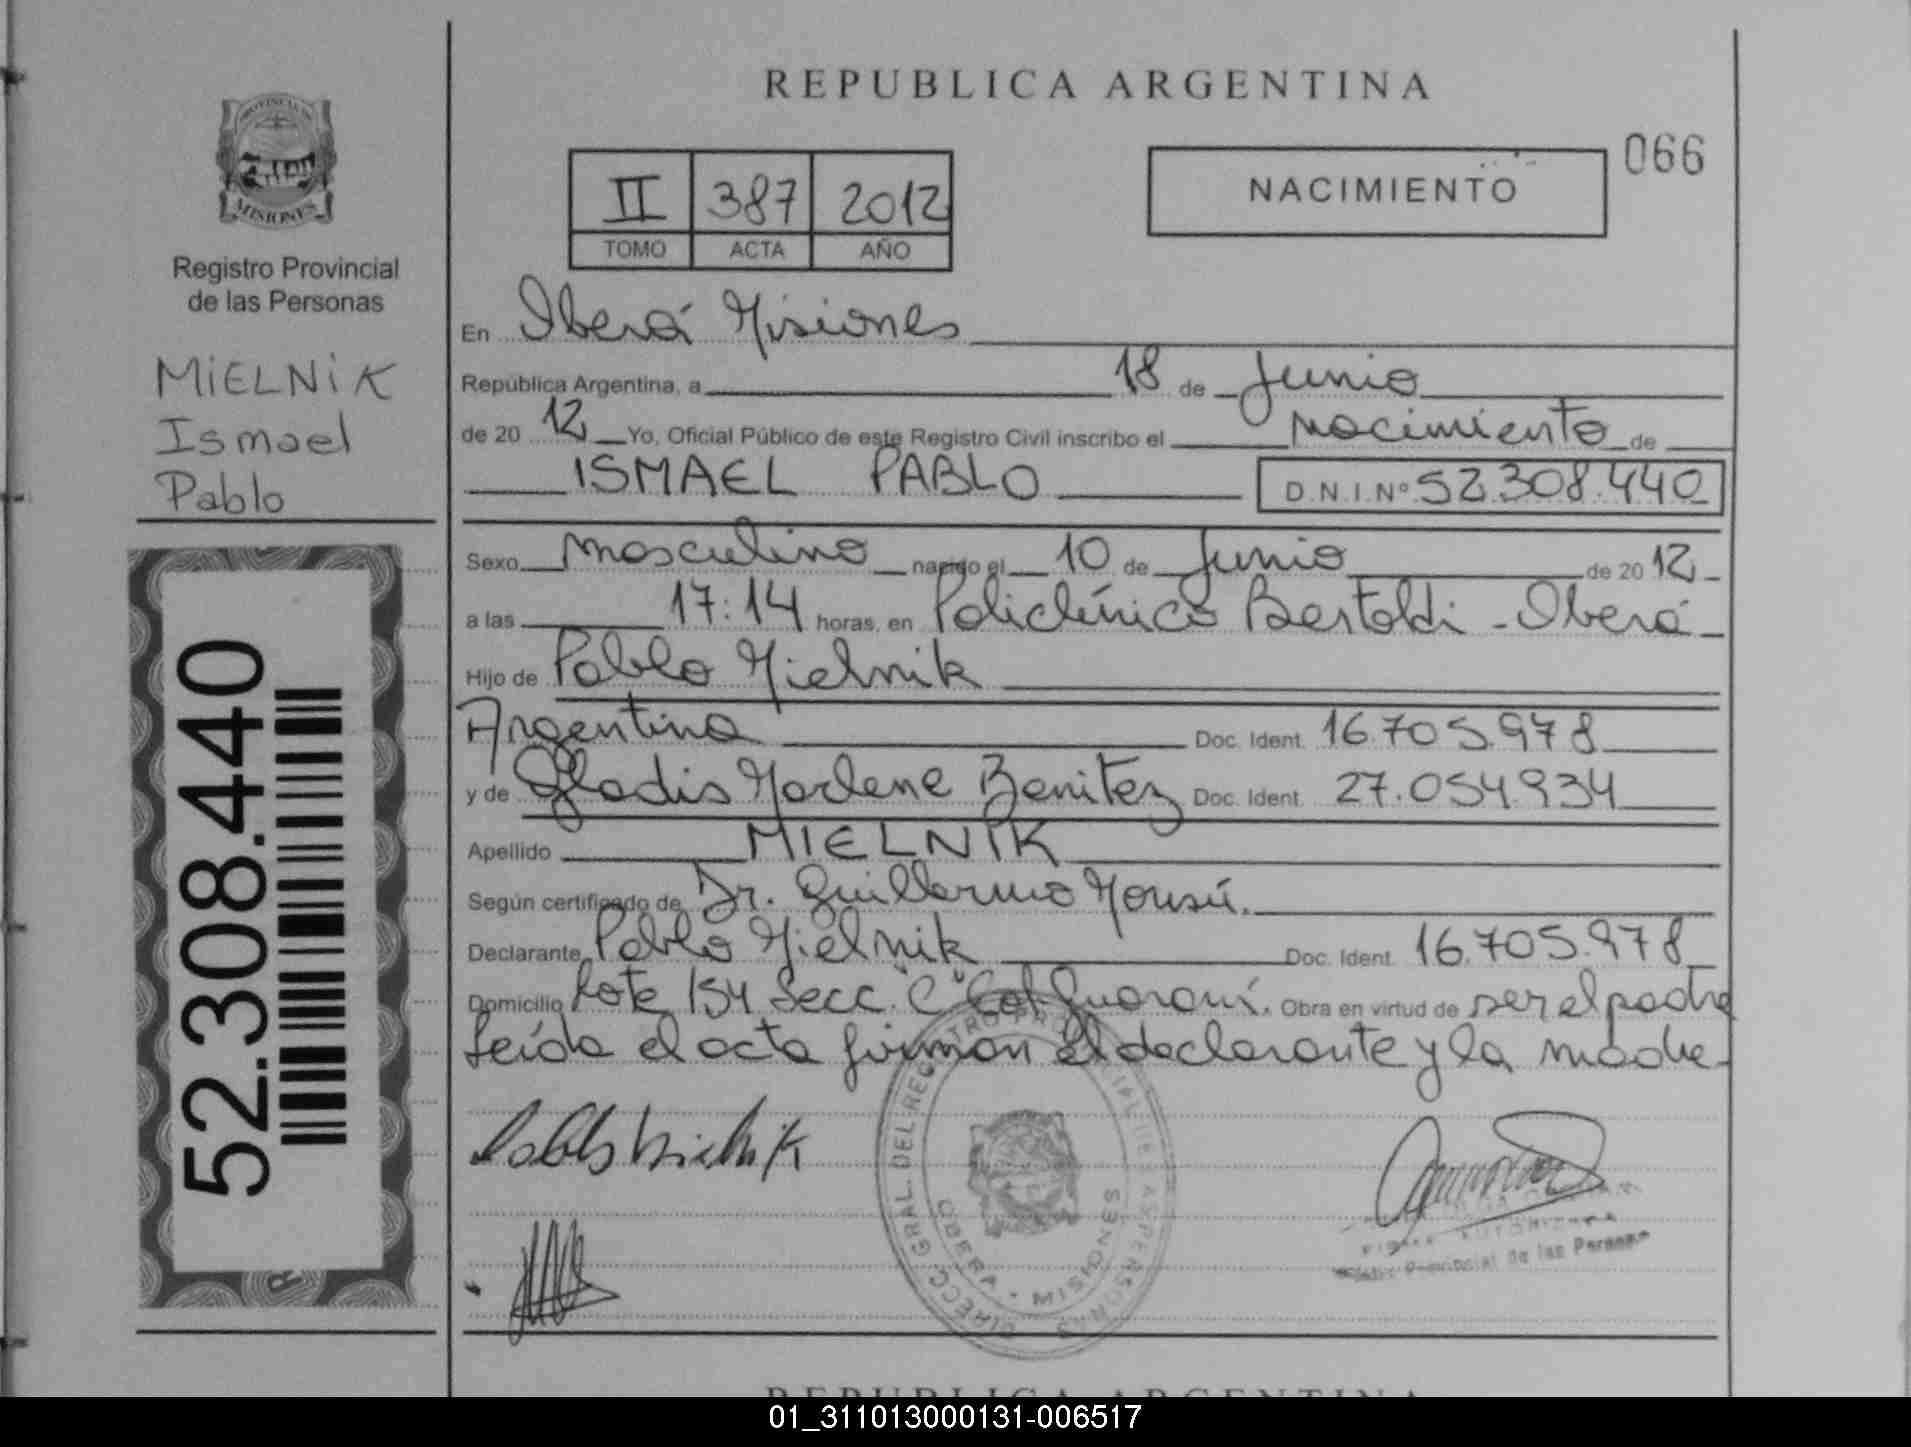 REPUBLICA ARGENTINA
066
II 387 2012
TOMO ACTA AÑO
NACIMIENTO
PROVINCIA DE
MISIONES
Registro Provincial
de las Personas
MIELNIK
Ismael
Pablo
52.308.440
En Oberá Misiones
República Argentina, a 18 de Junio
de 2012 Yo, Oficial Público de este Registro Civil inscribo el nacimiento de
ISMAEL PABLO D.N.I.Nº 52.308.440
Sexo masculino nacido el 10 de Junio de 2012
a las 17:14 horas, en Policlínico Bertoldi - Oberá
Hijo de Pablo Mielnik
Argentina Doc. Ident. 16.705.978
y de Gladis Marlene Benitez Doc. Ident. 27.054.934
Apellido MIELNIK
Según certificado de Dr. Guillermo
Declarante Pablo Mielnik Doc. Ident. 16.705.978
Domicilio Lote 154 Secc. "C" Col. Guaraní. Obra en virtud de ser el padre
Leída el acta firman el declarante y la madre
Pablo Mielnik
DIRECC. GRAL. DEL REGISTRO PROVINCIAL DE LAS PERSONAS
OBERA - MISIONES
Provincial de las Personas
REPUBLICA ARGENTINA
01_311013000131-006517